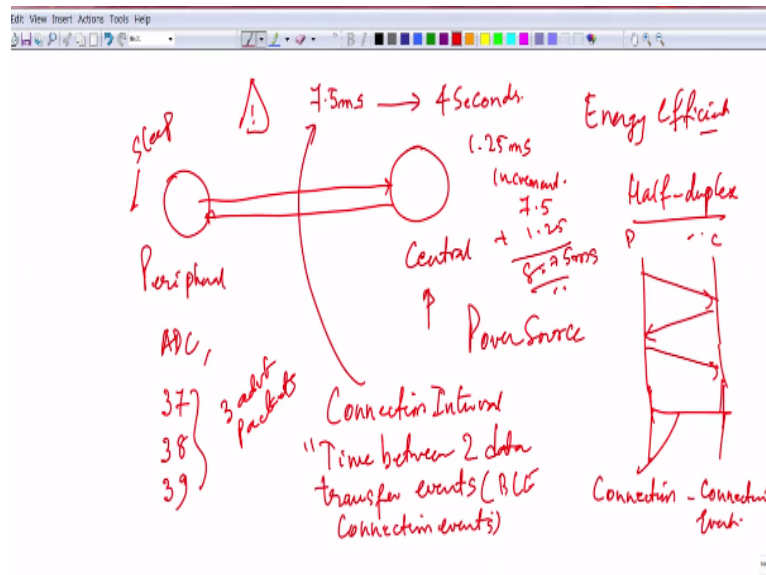 Edit View Insert Actions Tools Help
B I
7.5ms → 4 Seconds.
Energy Efficient
Sleep
!
1.25ms
Increment.
7.5
+ 1.25
8.75ms
Half-duplex
P C
Peripheral
Central
Power Source
ADC,
37
38
39
3 advt
packets
Connection Interval
"Time between 2 data
transfer events (BLE
Connection events)
Connection - Connection
Event.